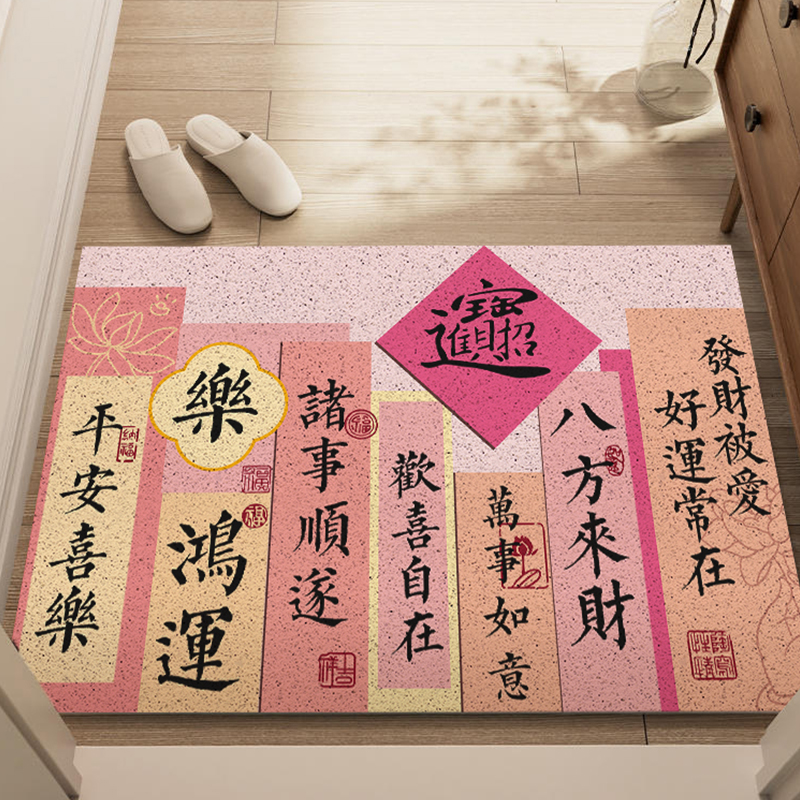 發財被愛
好運常在
招財進寶
八方來財
萬事如意
歡喜自在
諸事順遂
樂
鴻運
平安喜樂
福
納福
福
吉祥